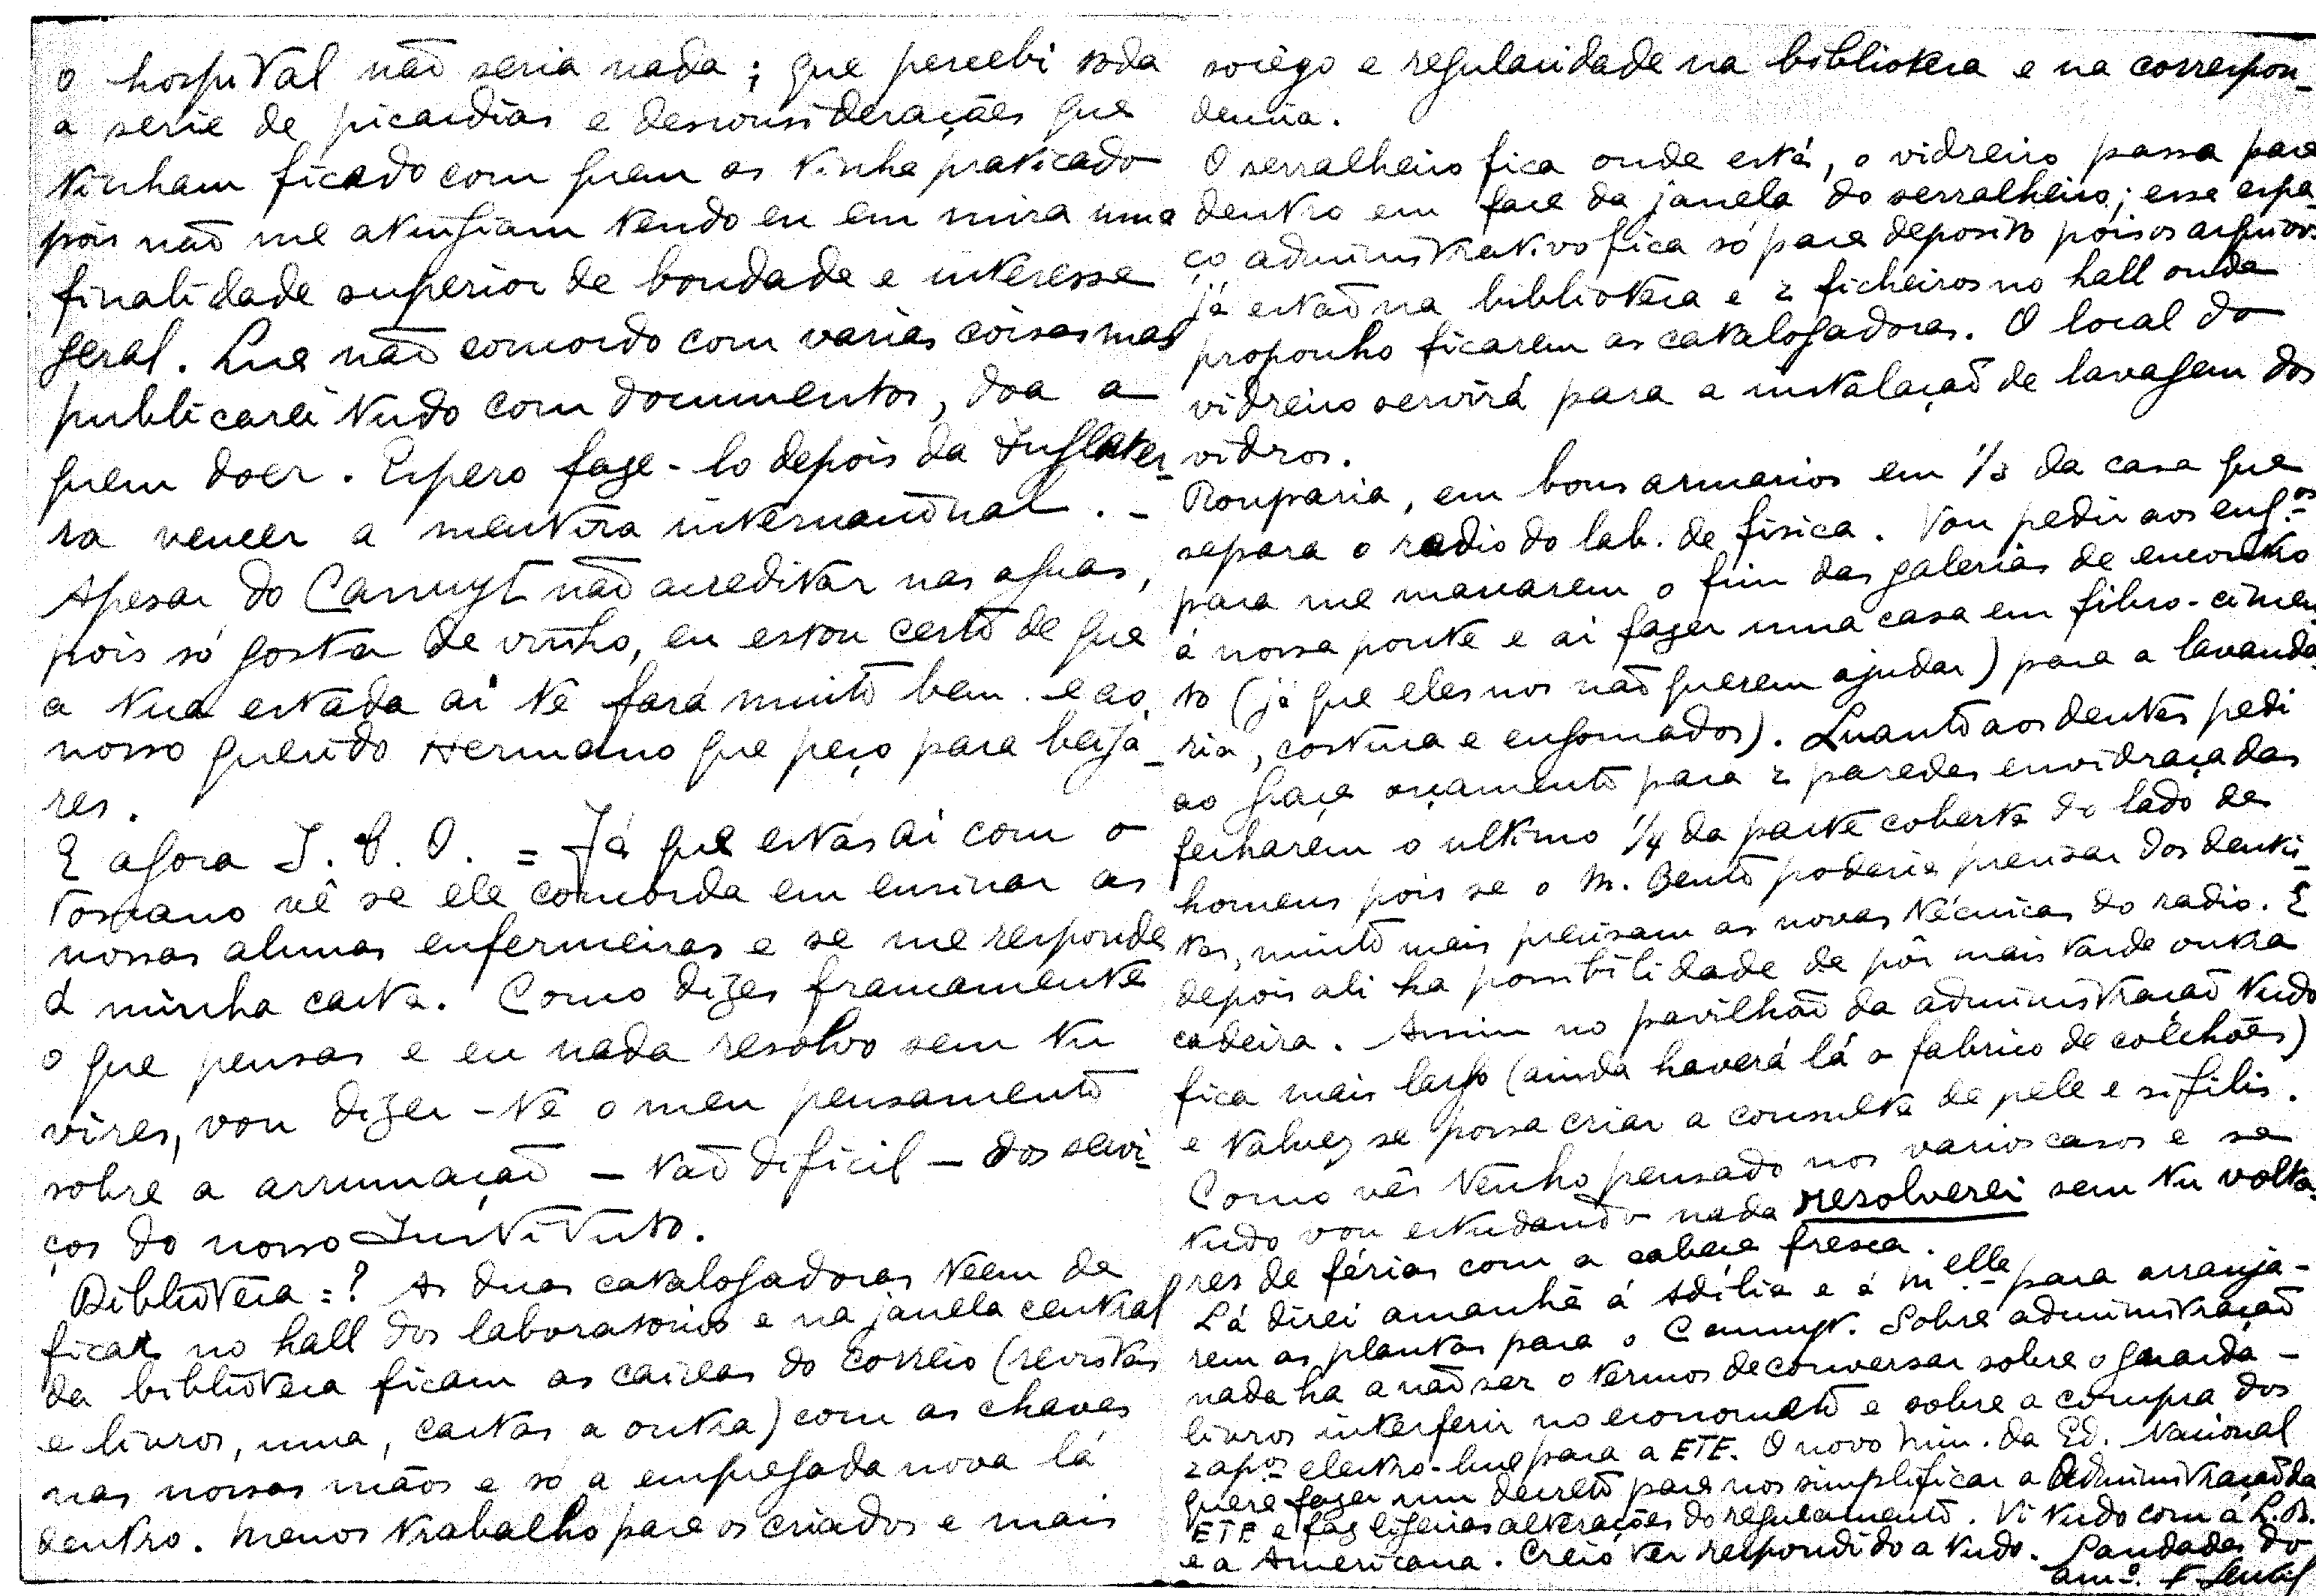 o hospital não seria nada; que percebi toda
a serie de picardias e desconsiderações que
tinham ficado com quem as tinha praticado
pois não me atingiam tendo eu em mira uma
finalidade superior de bondade e interesse
geral. Que não concordo com varias coisas mas
publicarei tudo com documentos, doa a
quem doer. Espero faze-lo depois da Inglater-
ra vencer a mentira internacional. –
Apesar do Canuyt não acreditar nas aguas,
pois só gosta de vinho, eu estou certo de que
a tua estada aí te fará muito bem e ao
nosso querido Hermano que peço para beija-
res.
E agora I. P. O. = Já que estás aí com o
Toscano vê se ele concorda em ensinar as
nossas alunas enfermeiras e se me responde
á minha carta. Como dizes francamente
o que pensas e eu nada resolvo sem tu
vires, vou dizer-te o meu pensamento
sobre a arrumação – tão dificil – dos servi-
ços do nosso Instituto.
Biblioteca = ? As duas catalogadoras teem de
ficar no hall dos laboratorios e na janela central
da biblioteca ficam as caixas do correio (revistas
e livros, uma, cartas a outra) com as chaves
nas nossas mãos e só a empregada nova lá
dentro. Menos trabalho para os criados e mais
socêgo e regularidade na biblioteca e na correspon-
dencia.
O serralheiro fica onde está, o vidreiro passa para
dentro em face da janela do serralheiro; esse espa-
ço administrativo fica só para deposito pois os arquivos
já estão na biblioteca e 2 ficheiros no hall onde
proponho ficarem as catalogadoras. O local do
vidreiro servirá para a instalação de lavagem dos
vidros.
Rouparia, em bons armarios em 1/3 da casa que
separa o radio do lab. de fisica. Vou pedir aos eng.os
para me marcarem o fim das galerias de encontro
á nossa ponte e aí fazer uma casa em fibro-cimen
to (já que eles nos não querem ajudar) para a lavanda
ria, costura e engomados). Quanto aos dentes pedi
ao Graça orçamento para 2 paredes envidraçadas
fecharem o ultimo 1/4 da parte coberta do lado de
homens pois se o M. Bento poderia precisar dos dentis-
tas, muito mais precisam as novas técnicas do radio. E
depois ali ha possibilidade de pôr mais tarde outra
cadeira. Assim no pavilhão da administração tudo
fica mais largo (ainda haverá lá o fabrico de colchões)
e talvez se possa criar a consulta de pele e sifilis.
Como vês tenho pensado nos varios casos e se
tudo vou estudando nada resolverei sem tu volta
res de férias com a cabeça fresca.
Lá direi amanhã á Adilia e á M.elle para arranja-
rem as plantas para o Canuyt. Sobre administração
nada ha a não ser o termos de conversar sobre o guarda-
livros interferir no economato e sobre a compra dos
2 ap.os electro-lux para a ETE. O novo Min. da Ed. Nacional
quere fazer um decreto para nos simplificar a Administração da
ETE e faz ligeiras alterações do regulamento. Vi tudo com a L.R.
e a Americana. Creio ter respondido a tudo. Saudades do
am.o F Gentil